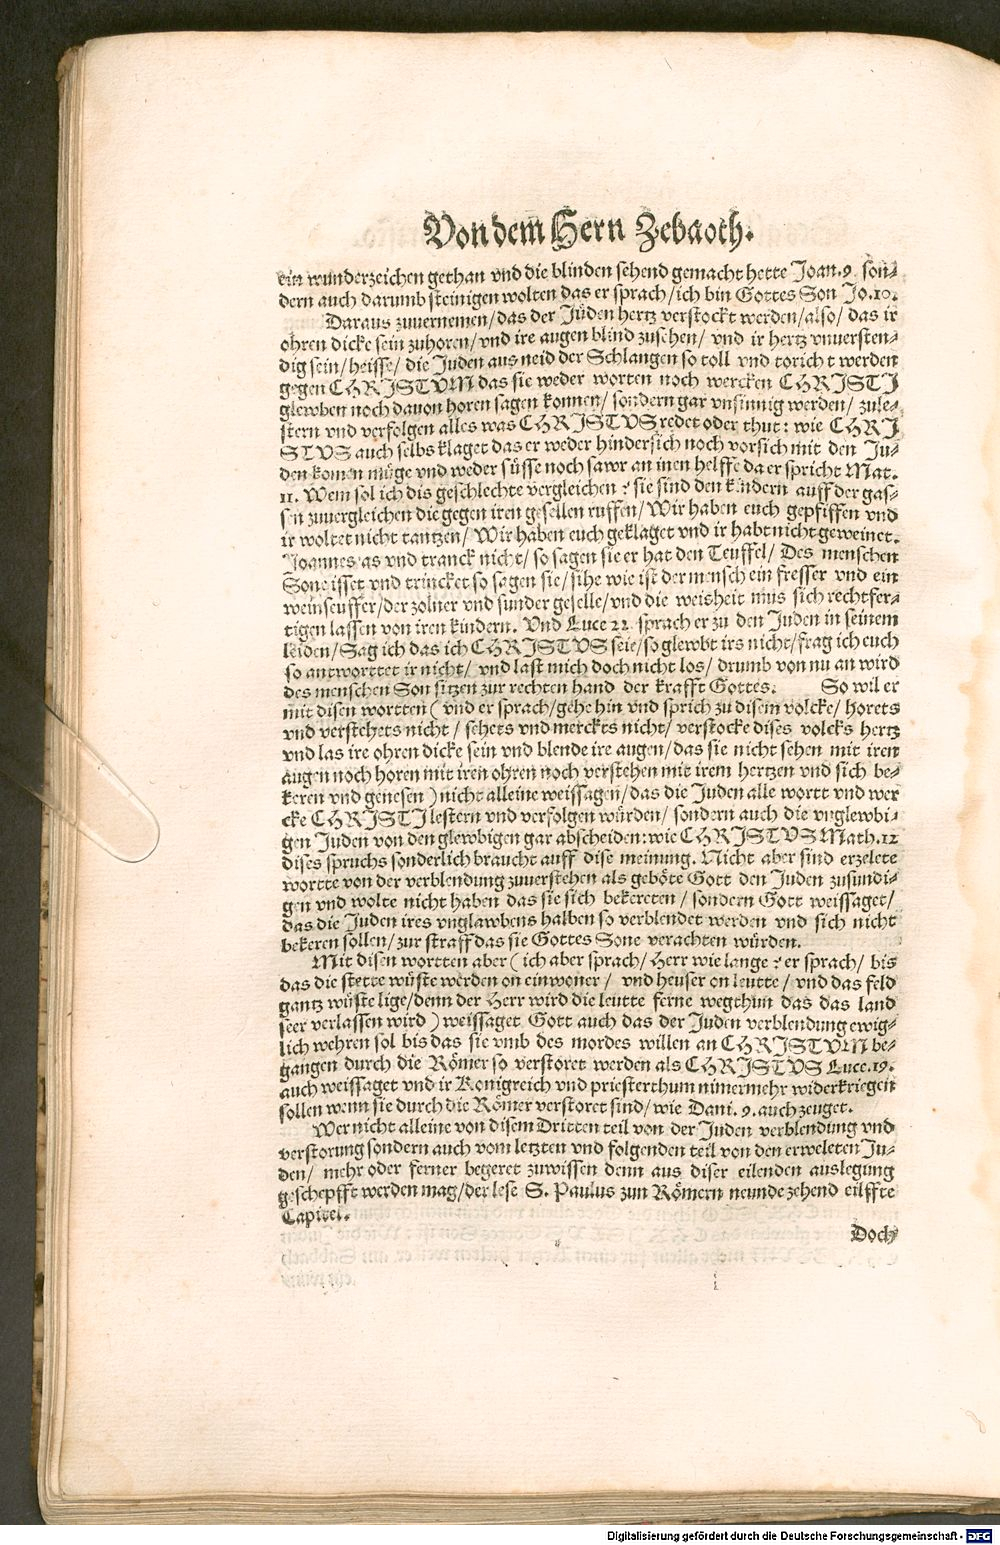 Von dem Hern Zebaoth.
ein wunderzeichen gethan vnd die blinden sehend gemacht hette Joan.9. son⸗
dern auch darumb steinigen wolten das er sprach/ich bin Gottes Son Jo.10.
Daraus zuuernemen/das der Jüden hertz verstockt werden/also/das ir
ohren dicke sein zuhoren/vnd ire augen blind zusehen/vnd ir hertz vnuersten⸗
dig sein/heisse/die Juden aus neid der Schlangen so toll vnd toricht werden
gegen CHRISTVM das sie weder worten noch wercken CHRISTI
glewben noch dauon horen sagen konnen/sondern gar vnsinnig werden/zule⸗
stern vnd verfolgen alles was CHRISTVS redet oder thut: wie CHRI
STVS auch selbs klaget das er weder hindersich noch vorsich mit den Ju⸗
den komen müge vnd weder süsse noch sawr an inen helffe da er spricht Mat.
11. Wem sol ich dis geschlechte vergleichen? sie sind den kindern auff der gas⸗
sen zuuergleichen die gegen iren gesellen ruffen/Wir haben euch gepfiffen vnd
ir woltet nicht tantzen/Wir haben euch geklaget vnd ir habt nicht geweinet.
Joannes as vnd tranck nicht/so sagen sie er hat den Teuffel/Des menschen
Sone isset vnd trincket so sagen sie/sihe wie ist der mensch ein fresser vnd ein
weinseuffer/der zolner vnd sunder geselle/vnd die weisheit mus sich rechtfer⸗
tigen lassen von iren kindern. Vnd Luce 22 sprach er zu den Juden in seinem
leiden/Sag ich das ich CHRISTVS seie/so glewbt irs nicht/frag ich euch
so antworttet ir nicht/vnd last mich doch nicht los/drumb von nu an wird
des menschen Son sitzen zur rechten hand der krafft Gottes. So wil er
mit disen wortten (vnd er sprach/gehe hin vnd sprich zu disem volcke/horets
vnd verstehets nicht/sehets vnd merckts nicht/verstocke dises volcks hertz
vnd las ire ohren dicke sein vnd blende ire augen/das sie nicht sehen mit iren
augen noch horen mit iren ohren noch verstehen mit irem hertzen vnd sich be⸗
keren vnd genesen) nicht alleine weissagen/das die Juden alle wortt vnd wer
cke CHRISTI lestern vnd verfolgen würden/sondern auch die vnglewbi⸗
gen Juden von den glewbigen gar abscheiden: wie CHRISTVS Math.12
dises spruchs sonderlich braucht auff dise meinung. Nicht aber sind erzelete
wortte von der verblendung zuuerstehen als geböte Gott den Juden zusundi⸗
gen vnd wolte nicht haben das sie sich bekereten/sondern Gott weissaget/
das die Juden ires vnglawbens halben so verblendet werden vnd sich nicht
bekeren sollen/zur straff das sie Gottes Sone verachten würden.
Mit disen wortten aber (ich aber sprach/Herr wie lange? er sprach/bis
das die stette wüste werden on einwoner/vnd heuser on leutte/vnd das feld
gantz wüste lige/denn der Herr wird die leutte ferne wegthun das das land
seer verlassen wird) weissaget Gott auch das der Juden verblendung ewig⸗
lich wehren sol bis das sie vmb des mordes willen an CHRISTVM be⸗
gangen durch die Römer so verstoret werden als CHRISTVS Luce.19.
auch weissaget vnd ir Konigreich vnd priesterthum nimermehr widerkriegen
sollen wenn sie durch die Römer verstoret sind/wie Dani. 9. auch zeuget.
Wer nicht alleine von disem Dritten teil von der Juden verblendung vnd
verstorung sondern auch vom letzten vnd folgenden teil von den erweleten Ju⸗
den/mehr oder ferner begeret zuwissen denn aus diser eilenden auslegung
geschepfft werden mag/der lese S. Paulus zun Römern neunde zehend eilffte
Capitel.
Doch
Digitalisierung gefördert durch die Deutsche Forschungsgemeinschaft - DFG